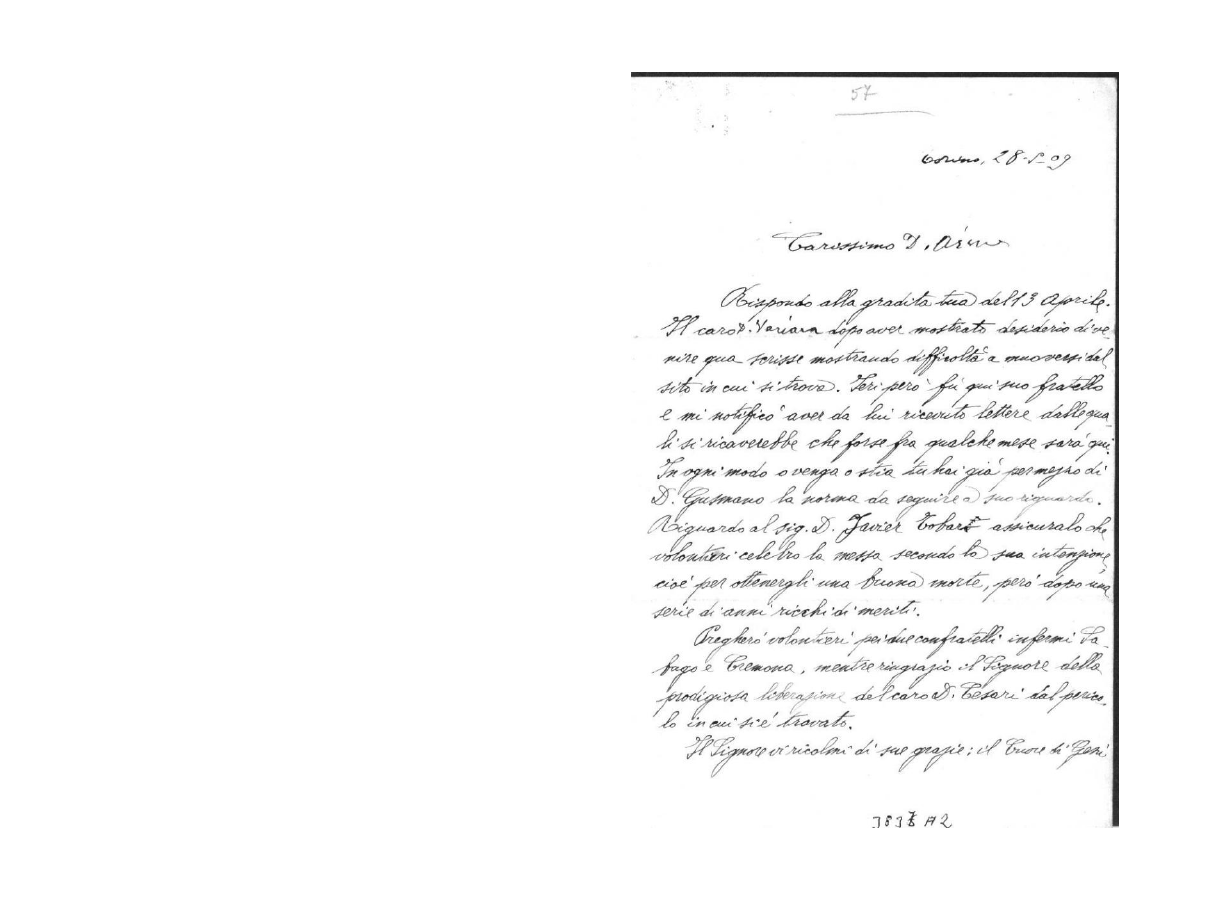 57
Torino, 28-5-09
Carissimo D. Aime
Rispondo alla gradita tua del 13 Aprile.
Il caro D. Variara dopo aver mostrato desiderio di ve-
nire qua scrisse mostrando difficoltà a muoversi dal
sito in cui si trova. Ieri però fu qui suo fratello
e mi notificò aver da lui ricevuto lettere dalle qua-
li si ricaverebbe che forse fra qualche mese sarà qui.
In ogni modo o venga o stia tu hai già per mezzo di
D. Gusmano la norma da seguire a suo riguardo.
Riguardo al sig. D. Javier Tobar assicuralo che
volontieri celebro la messa secondo la sua intenzione
cioè per ottenergli una buona morte, però dopo una
serie di anni ricchi di meriti.
Pregherò volontieri pei due confratelli infermi
e Cremona, mentre ringrazio il Signore della
prodigiosa liberazione del caro D. Cesari dal perico-
lo in cui si è trovato.
Il Signore vi ricolmi di sue grazie; il Cuore di Gesù
A2